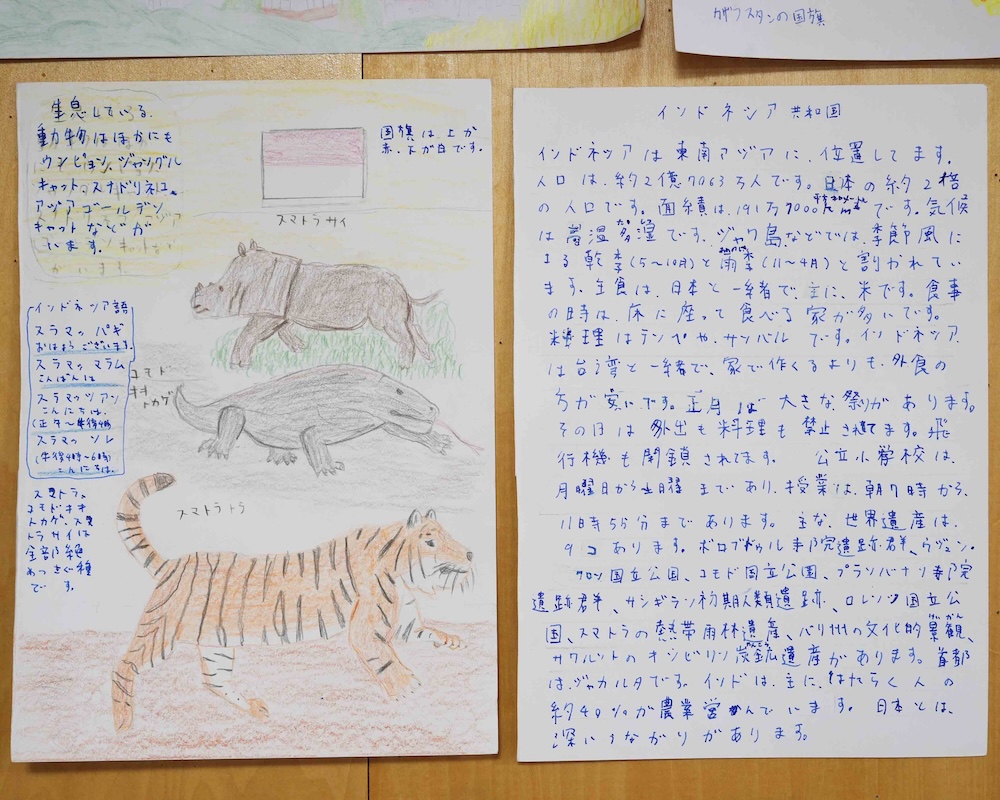 カザフスタンの国旗
生息している。
動物はほかにも
ウンピョウ、ジャングル
キャット、スナドリネコ、
アジアゴールデン
キャットなどが
います。
国旗は上が
赤、下が白です。
スマトラサイ
インドネシア語
スラマッ パギ
おはようございます。
スラマッ マラム
こんばんは
スラマッ シアン
こんにちは。
(正午〜午後4時)
スラマッ ソレ
(午後4時〜6時)
こんにちは。
コモド
オオ
トカゲ
スマトラトラ
スマトラ、
コモドオオ
トカゲ、スマ
トラサイは
全部絶
めつきぐ種
で す。
インドネシア 共和国
インドネシアは東南アジアに、位置してます。
人口は、約2億7063万人です。日本の約2倍
の人口です。面積は、191万7000㎢ です。気候
は高温多湿です。ジャワ島などでは、季節風に
よる乾季(5〜10月)と雨季(11〜4月)と割かれてい
ます。主食は、日本と一緒で、主に、米です。食事
の時は、床に座って食べる家が多いです。
料理はテンペや、サンバル です。インドネシア
は台湾と一緒で、家で作くるよりも、外食の
方が安いです。正月は 大きな祭りがあります。
その日は外出も料理も禁止されてます。飛
行機も閉鎖されてます。 公立小学校は、
月曜日から土曜 まであり、授業は、朝7時から、
11時55分まであります。主な、世界遺産は、
9コあります。ボロブドゥル寺院遺跡群、ウジュン・
クロン国立公園、コモド国立公園、プランバナン寺院
遺跡群、サンギラン初期人類遺跡、ロレンツ国立公
園、スマトラの熱帯雨林遺産、バリ州の文化的景観、
サワルントのオンビリン炭鉱遺産があります。首都
は、ジャカルタです。インドは、主に、はたらく人の
約40%が農業営んでいます。日本とは、
深いつながりがあります。